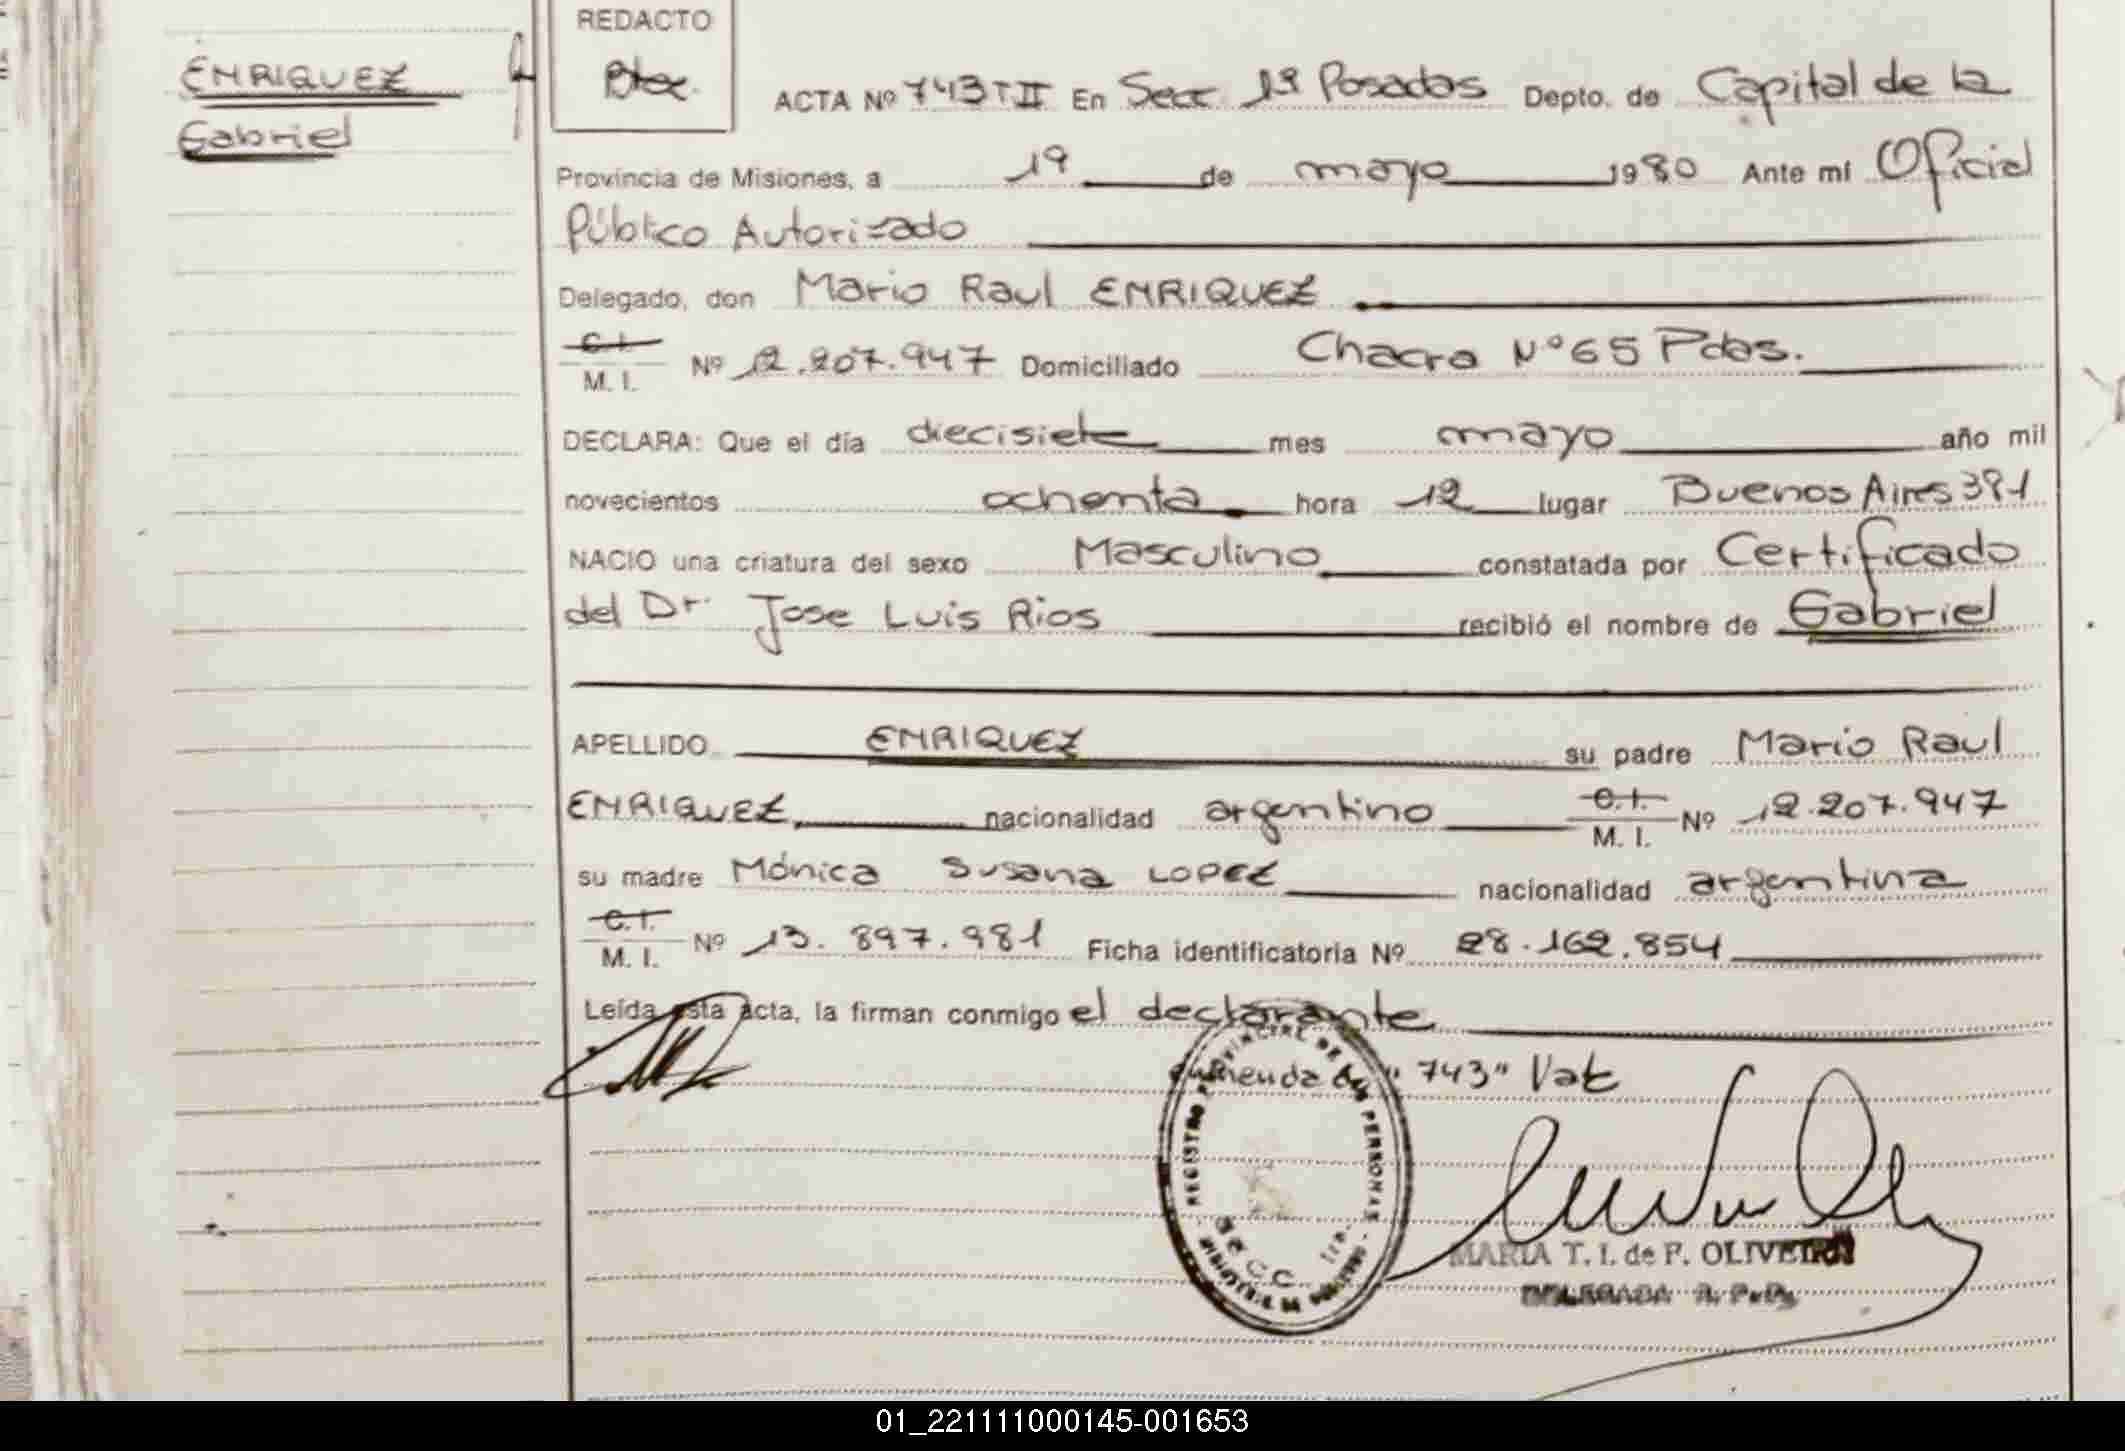 REDACTO
ENRIQUEZ
Gabriel
ACTA Nº 743 T II En Secc. 1ª Posadas Depto. de Capital de la
Provincia de Misiones, a 19 de mayo 1980 Ante mí Oficial
Público Autorizado
Delegado, don Mario Raul ENRIQUEZ
C. I.
M. I. Nº 12.207.947 Domiciliado Chacra Nº 65 Pdas.
DECLARA: Que el día diecisiete mes mayo año mil
novecientos ochenta hora 12 lugar Buenos Aires 391
NACIO una criatura del sexo Masculino constatada por Certificado
del Dr. Jose Luis Rios recibió el nombre de Gabriel
APELLIDO ENRIQUEZ su padre Mario Raul
ENRIQUEZ, nacionalidad argentino C. I. M. I. Nº 12.207.947
su madre Mónica Susana LOPEZ nacionalidad argentina
C. I.
M. I. Nº 13.897.981 Ficha identificatoria Nº 28.162.854
Leída esta acta, la firman conmigo el declarante
enmendado "743" Vale
REGISTRO PROVINCIAL DE LAS PERSONAS
SECC. 1ra.
MARIA T. I. de F. OLIVEIRA
DELEGADA R. P. P.
01_221111000145-001653